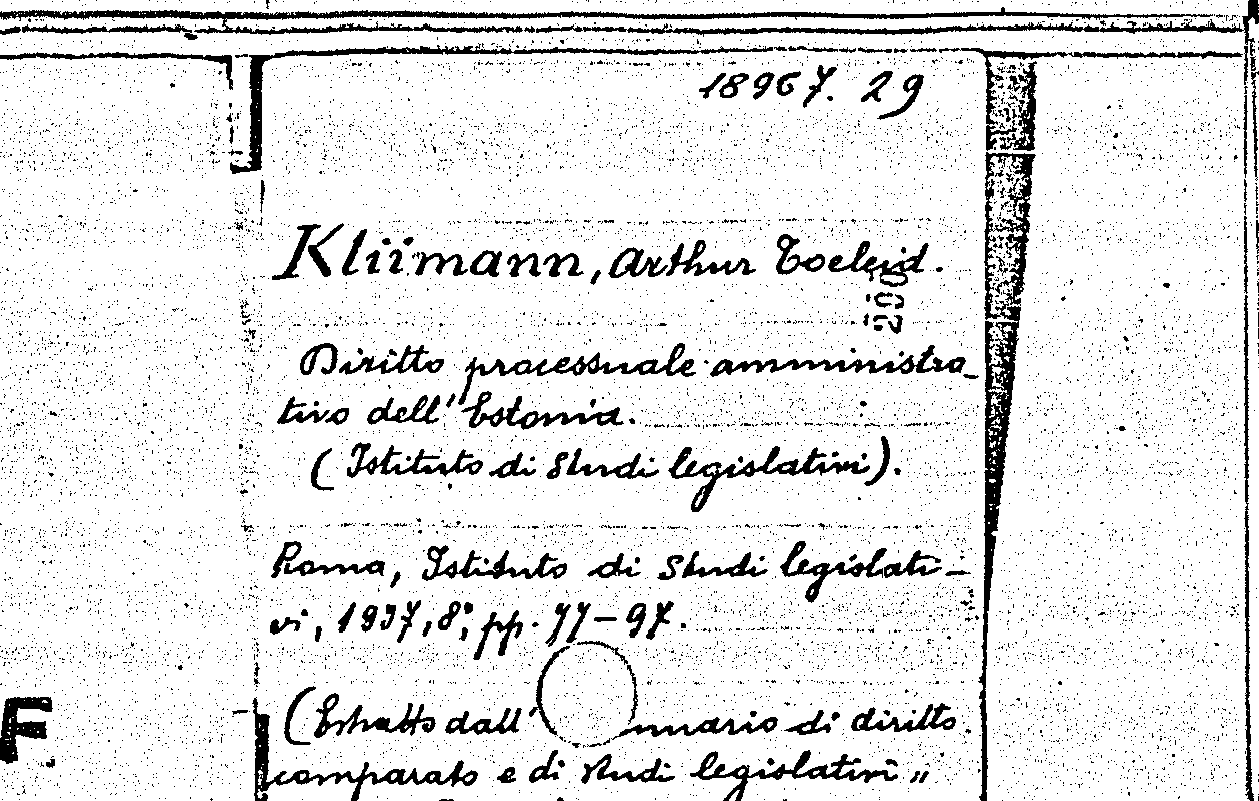 18967. 29
Kliimann, Arthur Toeleid.
200
Diritto processuale amministra-
tivo dell'Estonia.
(Istituto di Studi legislativi).
Roma, Istituto di Studi legislati-
vi, 1937, 8°, pp. 77-97.
(Estratto dall' nnuario di diritto
comparato e di studi legislativi„
F.